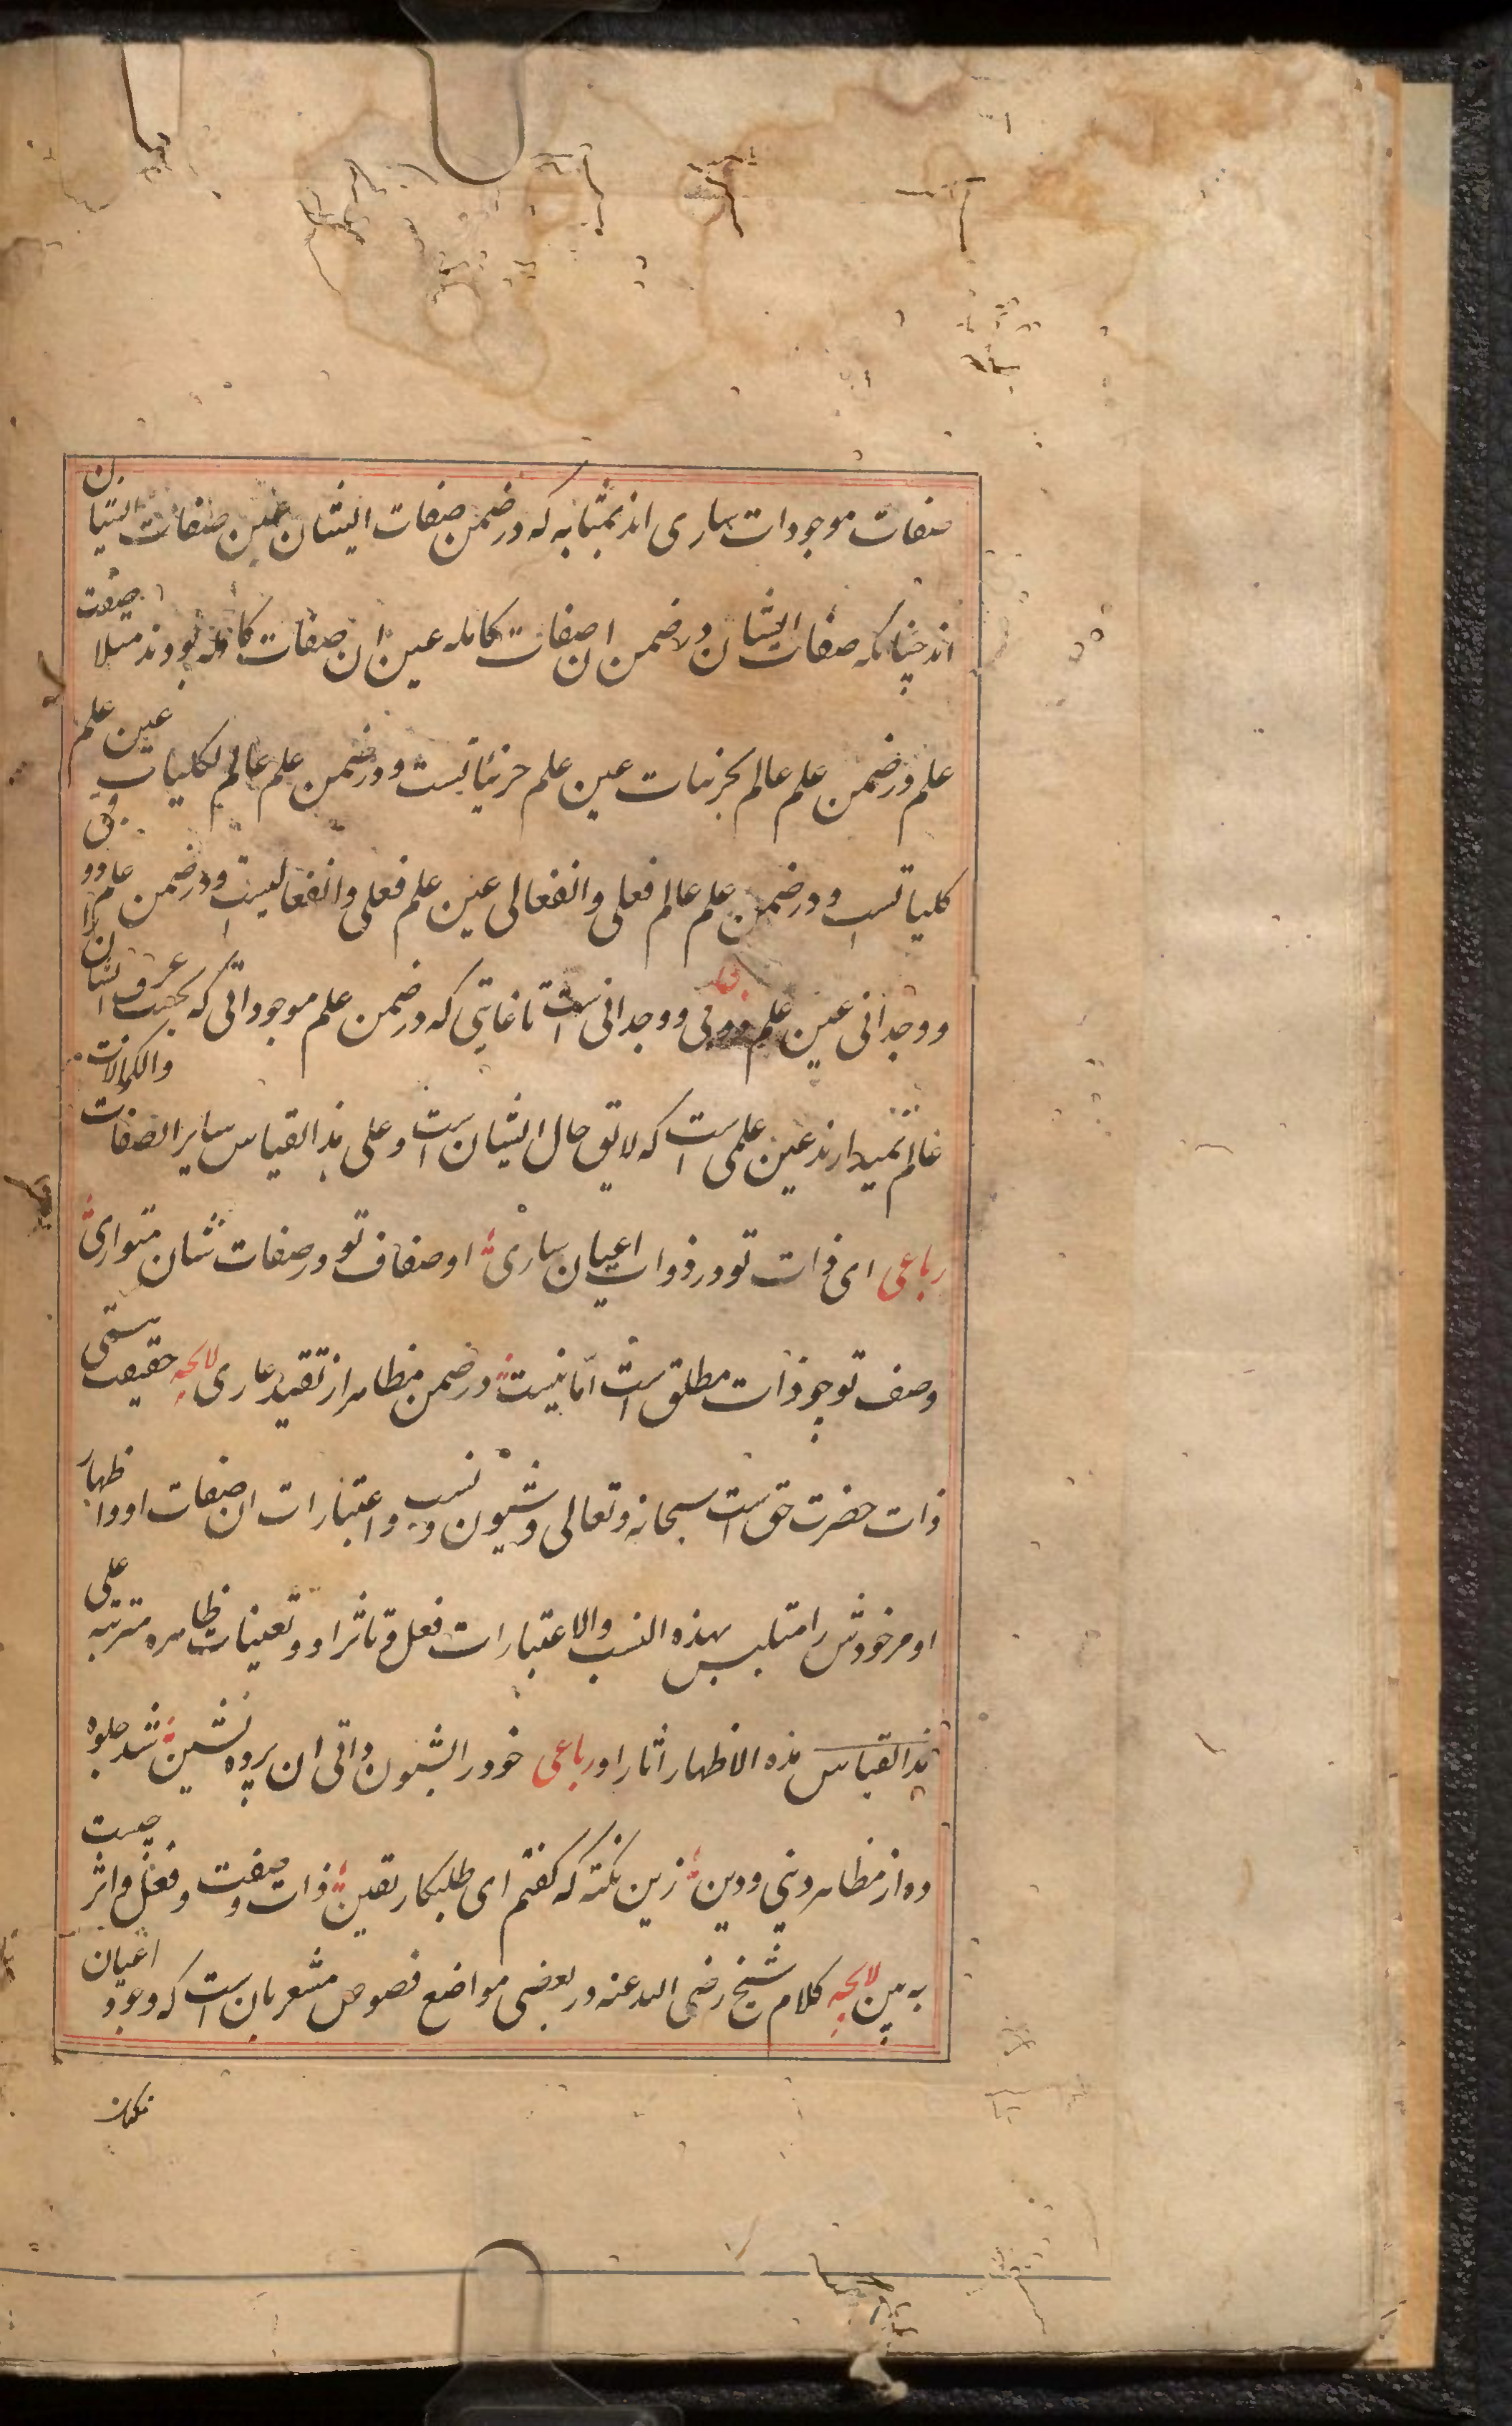 صفات موجودات ساری اند بمثابه که در ضمن صفات ایشان عین صفات ایشان
اند چنانکه صفات ایشان در ضمن ان صفات کامله عین ان صفات کامله بودند مثلا صفت
علم در ضمن علم عالم بجزئیات عین علم جزئیاتست و در ضمن علم عالم بکلیات عین علم
کلیاتست و در ضمن علم عالم فعلی و انفعالی عین علم فعلی و انفعالیست و در ضمن علم ذوقی
و وجدانی عین علم ذوقی و وجدانی است تا غایتی که در ضمن علم موجوداتی که بحسب عرف ایشان را
عالم نمیدارند عین علمی است که لایق حال ایشان است و علی هذا القیاس سایر الصفات والکمالات
رباعی ای ذات تو در ذوات اعیان ساری اوصاف تو در صفات شان متواری
وصف تو چو ذات مطلق است اما نیست در ضمن مظاهر از تقید عاری لایحه حقیقت هستی
ذات حضرت حق است سبحانه و تعالی و شیون و نسب و اعتبارات ان صفات او و اظهار
او مر خودش را متلبس بهذه النسب والاعتبارات فعل و تاثر او و تعینات ظاهره مترتبه علی
هذا القیاس هذه الاظهار اثار او رباعی خود را بشیون ذاتی ان پرده نشین شد جلوه
ده از مظاهر دنیی و دین زین نکته که گفتم ای طلبکار یقین ذات و صفت و فعل و اثر چیست
به بین لایحه کلام شیخ رضی الله عنه در بعضی مواضع فصوص مشعر بان است که وجود اعیان